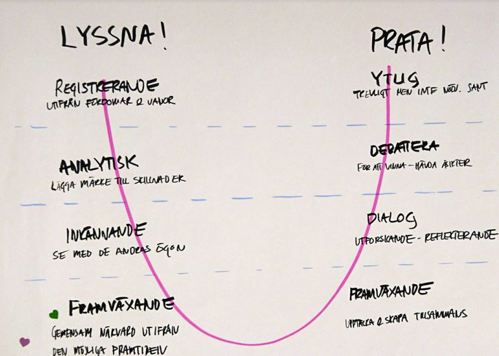 LYSSNA!
REGISTRERANDE
UTIFRÅN FÖRDOMAR & VANOR
ANALYTISK
LÄGGA MÄRKE TILL SKILLNADER
INKÄNNANDE
SE MED DE ANDRAS ÖGON
FRAMVÄXANDE
GEMENSAM NÄRVARO UTIFRÅN
DEN MÖJLIGA FRAMTIDEN
PRATA!
YTLIG
TREVLIGT MEN INTE NÖDV. SANT
DEBATTERA
FÖR ATT VINNA - HÄVDA ÅSIKTER
DIALOG
UTFORSKANDE - REFLEKTERANDE
FRAMVÄXANDE
UPPTÄCKA & SKAPA TILLSAMMANS